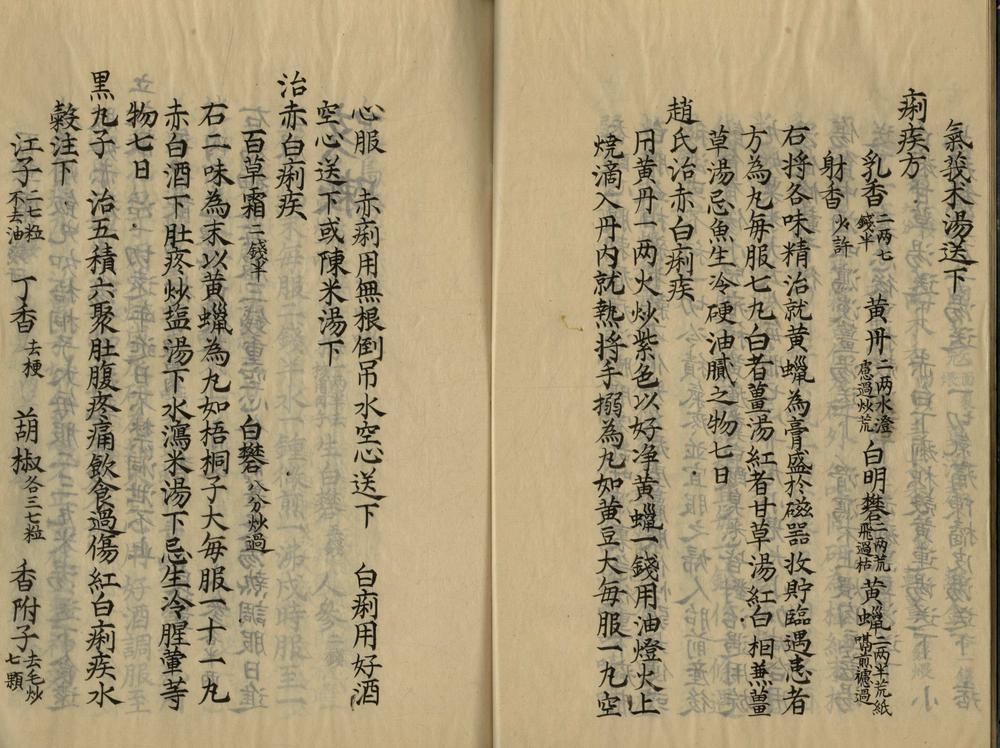 氣莪术湯送下
痢疾方
乳香二两七錢半 黃丹二两水澄慮過炒荒 白明礬二两荒飛過枯 黃蠟二两半荒紙噶煎濾過
射香火許
右將各味精治就黃蠟為膏盛於磁器收貯臨遇患者
方為丸每服七丸白者薑湯紅者甘草湯紅白相蒹薑
草湯忌魚生冷硬油膩之物七日
趙氏治赤白痢疾
用黃丹一两火炒紫色以好净黃蠟一錢用油燈火上
燒滴入丹内就熱將手搦為丸如黃豆大每服一丸空
心服 赤痢用無根倒吊水空心送下 白痢用好酒
空心送下或陳米湯下
治赤白痢疾
百草霜二錢半 白礬八分炒過
右二味為末以黃蠟為丸如梧桐子大每服一十一丸
赤白酒下肚疼炒塩湯下水瀉米湯下忌生冷腥葷等
物七日
黒丸子 治五積六聚肚腹疼痛飲食過傷紅白痢疾水
穀注下
江子二七粒不去油 丁香去梗 葫椒各三七粒 香附子去毛炒七顆